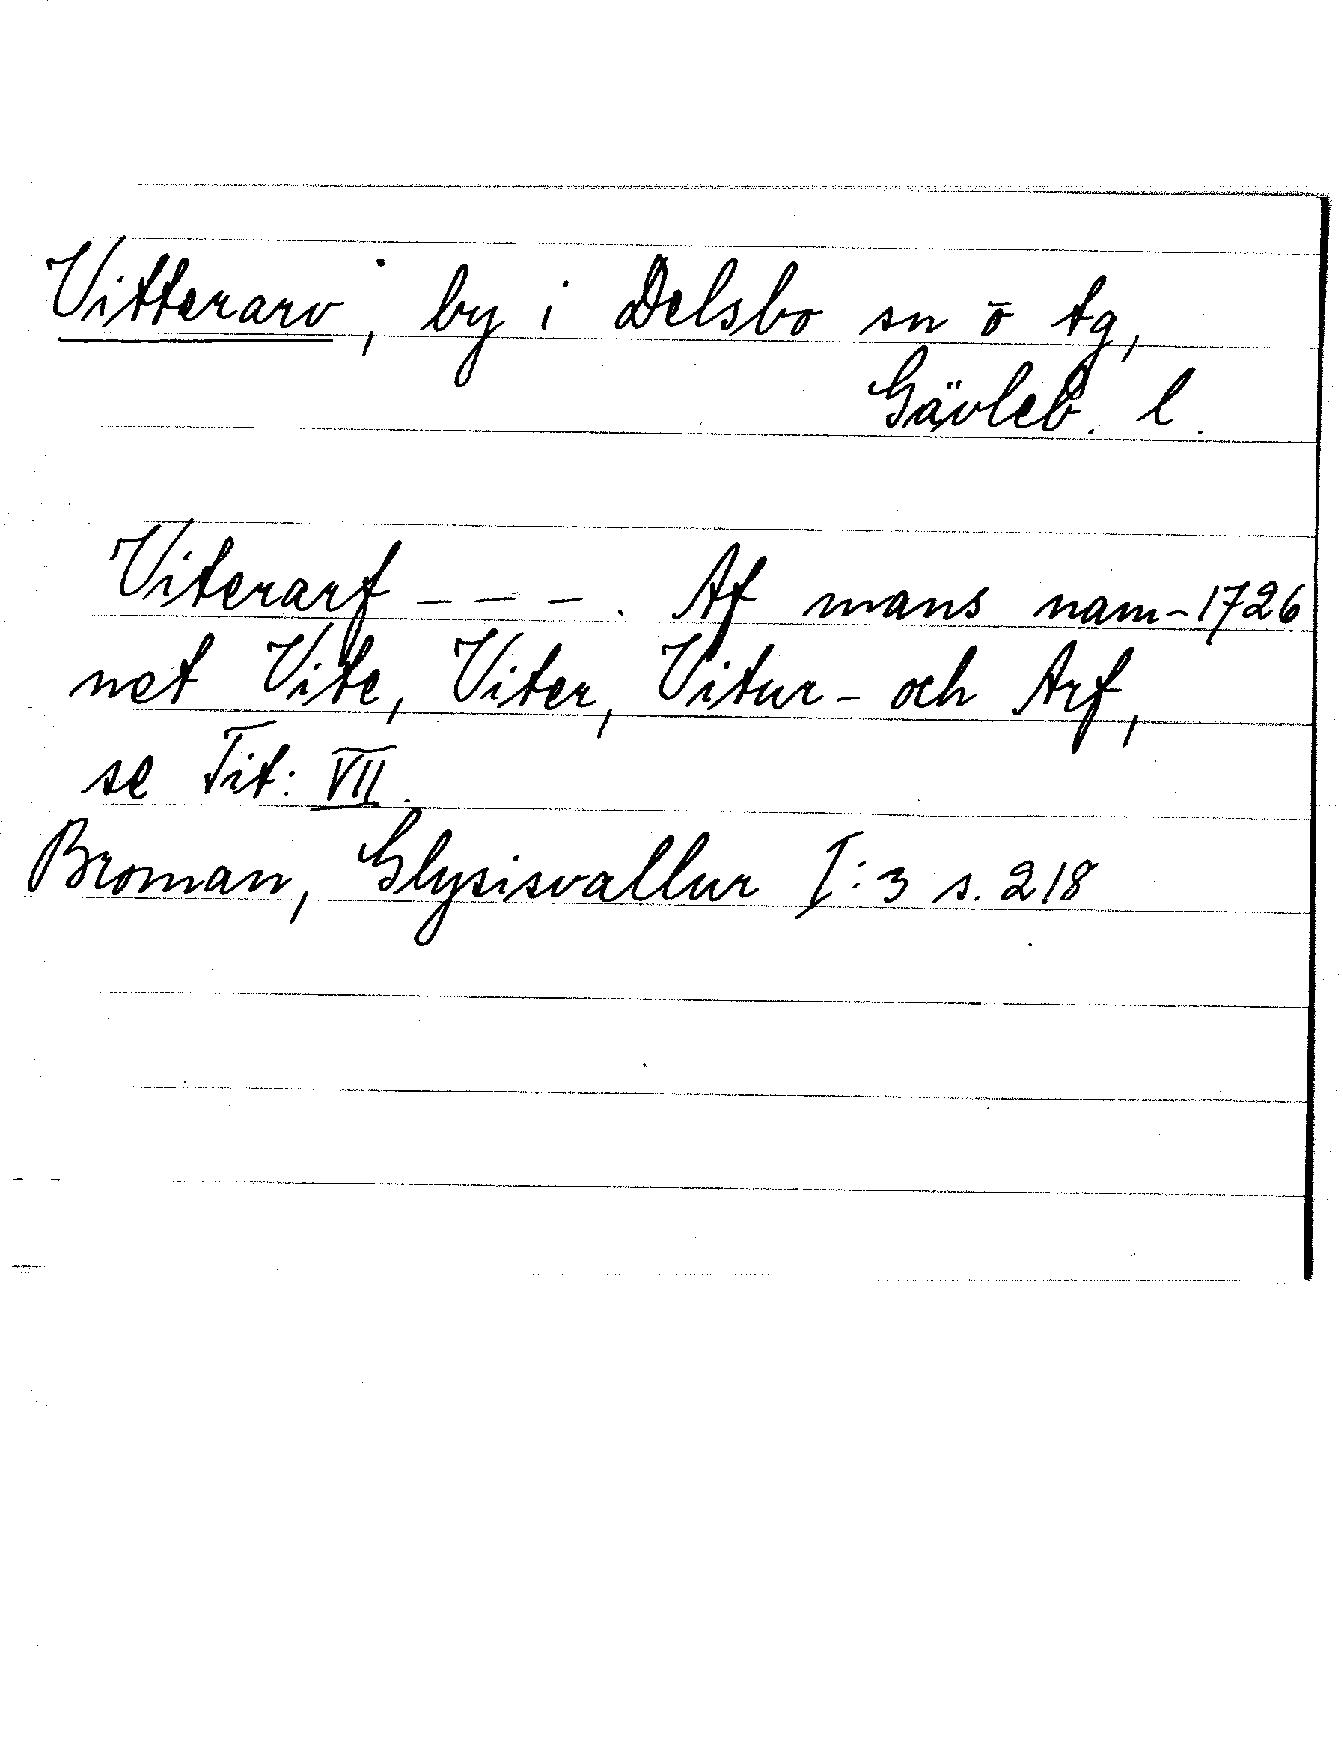 Vitterarv, by i Delsbo sn o tg,
Gävleb. l.
Viterarf - - - . Af mans nam- 1726
net Vite, Viter, Vitur - och Arf,
se Tit: VII.
Broman, Glysisvallur I:3 s. 218